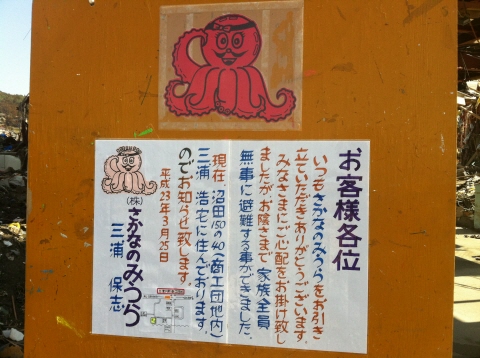 お客様各位
いつもさかなのみうらをお引き
立ていただきありがとうございます。
みなさまにご心配をお掛け致し
ましたが、お陰さまで家族全員
無事に避難する事ができました。
現在、沼田150の40(商工団地内)
三浦 浩宅に住んでおります。
のでお知らせ致します。
平成23年3月25日
(株)さかなのみうら
三浦 保志